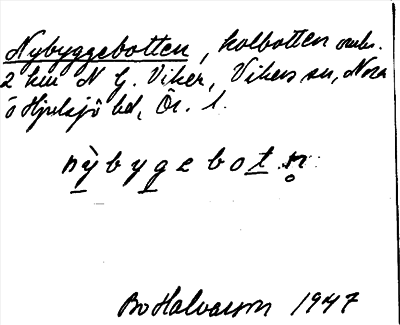 Nybyggebotten, kolbotten omkr.
2 km N G. Viker, Vikers sn, Nora
o Hjulsjö bd, Ör. l.
nỳbygebotn̥
Bo Halvarson 1947